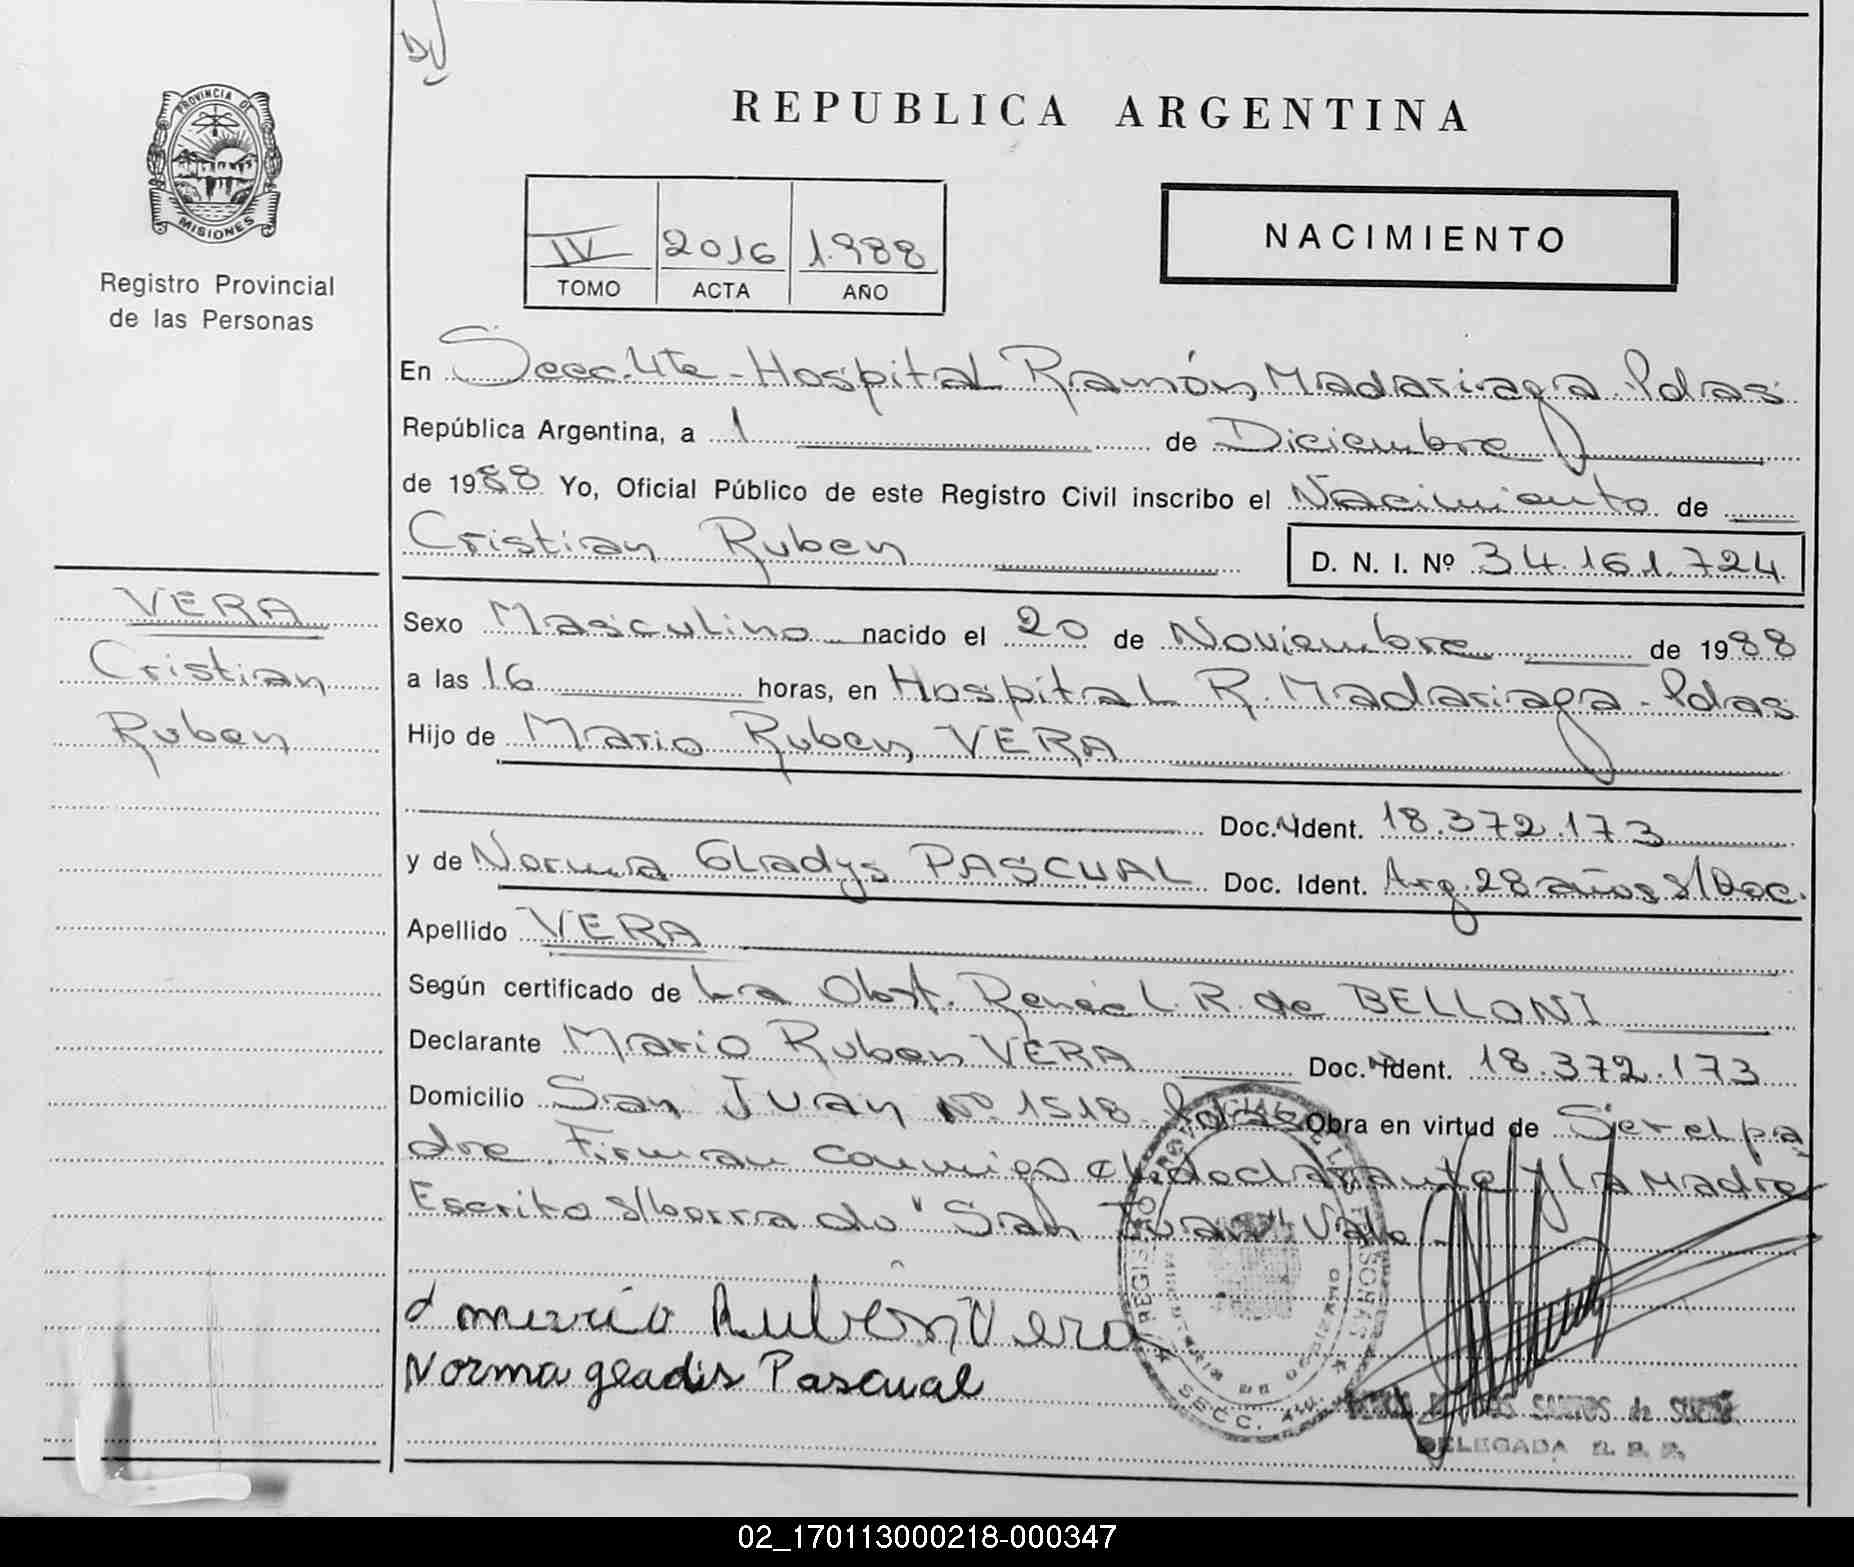 DV
REPUBLICA ARGENTINA
PROVINCIA DE
MISIONES
Registro Provincial
de las Personas
IV 2016 1.988
TOMO ACTA AÑO
NACIMIENTO
En Secc. 4ta - Hospital Ramón Madariaga. Pdas
República Argentina, a 1 de Diciembre
de 1988 Yo, Oficial Público de este Registro Civil inscribo el Nacimiento de
Cristian Ruben
D. N. I. Nº 34.161.724
VERA
Cristian
Ruben
Sexo Masculino nacido el 20 de Noviembre de 1988
a las 16 horas, en Hospital R. Madariaga - Pdas
Hijo de Mario Ruben VERA
Doc. Ident. 18.372.173
y de Norma Gladys PASCUAL Doc. Ident. Arg. 28 años s/Doc.
Apellido VERA
Según certificado de La Obst. Reneé L. R. de BELLONI
Declarante Mario Ruben VERA Doc. Ident. 18.372.173
Domicilio San Juan Nº 1518 - Pdas Obra en virtud de Ser el pa
dre. Firman conmigo el declarante y la Madre
Escrito s/borrado "San Juan" Vale -
mario Rubén Vera
Norma gladis Pascual
SECC. 4ta.
SANTOS de
DELEGADA R. P. P.
02_170113000218-000347